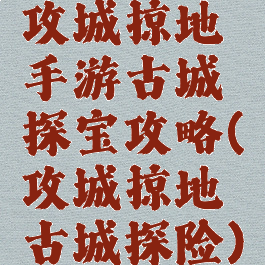 攻城掠地
手游古城
探宝攻略(
攻城掠地
古城探险)